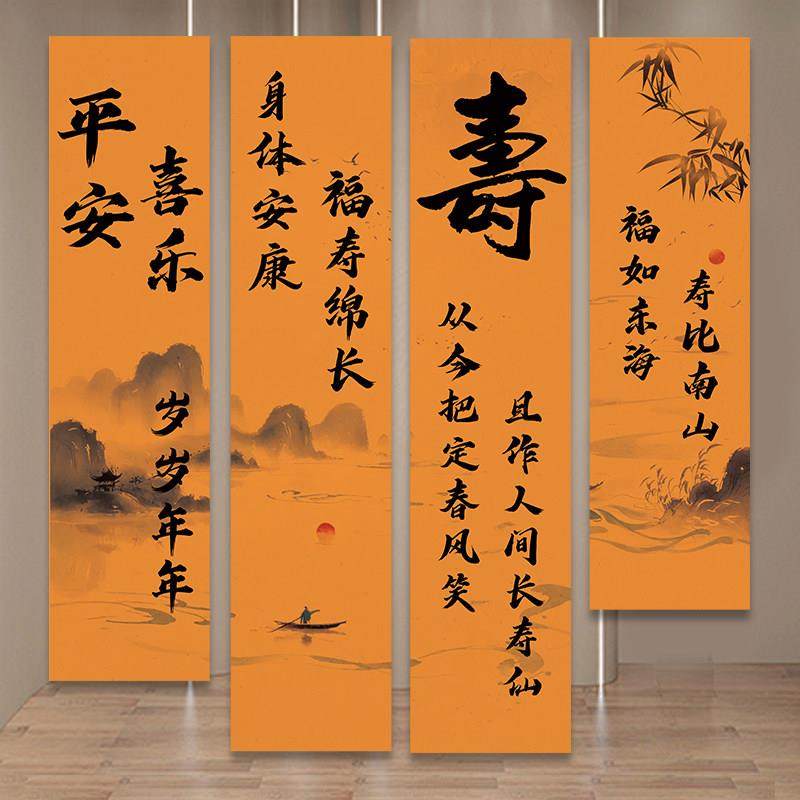 平安
喜乐
岁岁年年
身体安康
福寿绵长
寿
从今把定春风笑
且作人间长寿仙
福如东海
寿比南山